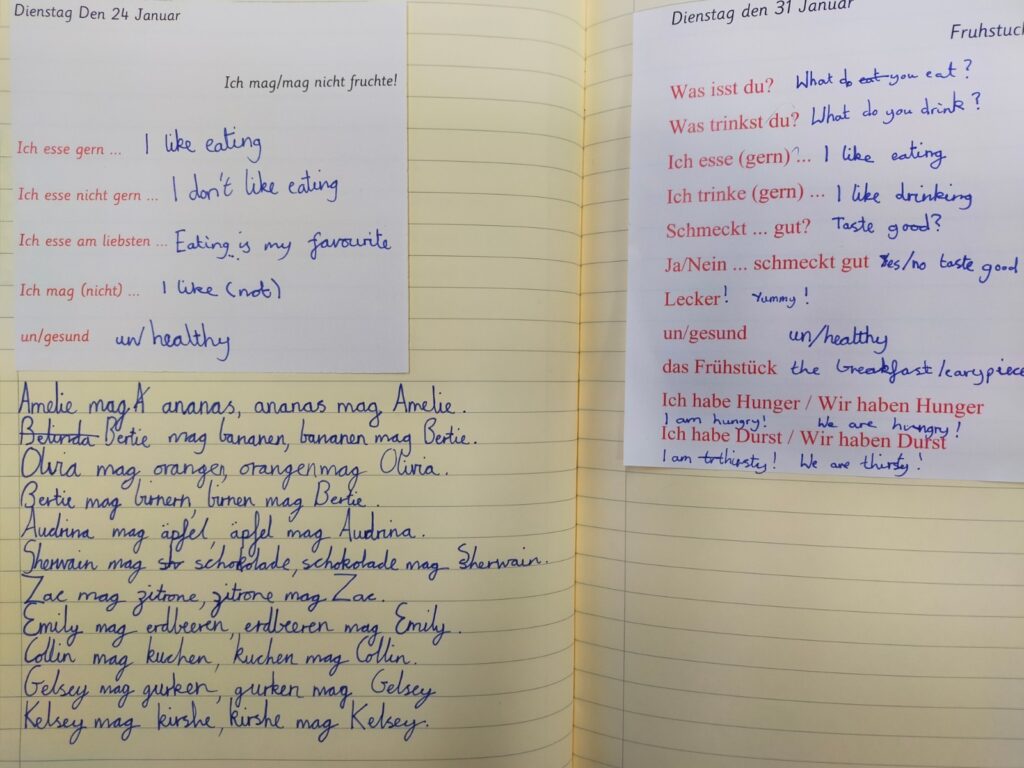 Dienstag Den 24 Januar
Ich mag/mag nicht fruchte!
Ich esse gern ... I like eating
Ich esse nicht gern ... I don't like eating
Ich esse am liebsten ... Eating is my favourite
Ich mag (nicht) ... I like (not)
un/gesund un/healthy
Amelie mag A ananas, ananas mag Amelie.
Belinda Bertie mag bananen, bananen mag Bertie.
Olivia mag orangen, orangen mag Olivia.
Bertie mag birnern, birnen mag Bertie.
Audrina mag äpfel, äpfel mag Audrina.
Sherwain mag sho schokolade, schokolade mag Sherwain.
Zac mag zitrone, zitrone mag Zac.
Emily mag erdbeeren, erdbeeren mag Emily.
Collin mag kuchen, kuchen mag Collin.
Gelsey mag gurken, gurken mag Gelsey
Kelsey mag kirshe, kirshe mag Kelsey.
Dienstag den 31 Januar
Fruhstuck
Was isst du? What do eat you eat?
Was trinkst du? What do you drink?
Ich esse (gern) ... I like eating
Ich trinke (gern) ... I like drinking
Schmeckt ... gut? Taste good?
Ja/Nein ... schmeckt gut Yes/no taste good
Lecker! Yummy!
un/gesund un/healthy
das Frühstück the breakfast/earypiece
Ich habe Hunger / Wir haben Hunger
I am hungry! We are hungry!
Ich habe Durst / Wir haben Durst
I am trthirsty! We are thirsty!